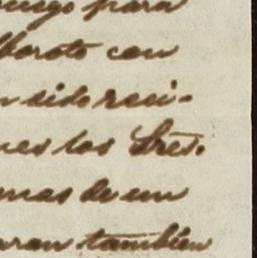 ruego para
lboroto con
n sido reci-
nes los Sres.
mas de un
aran tambien